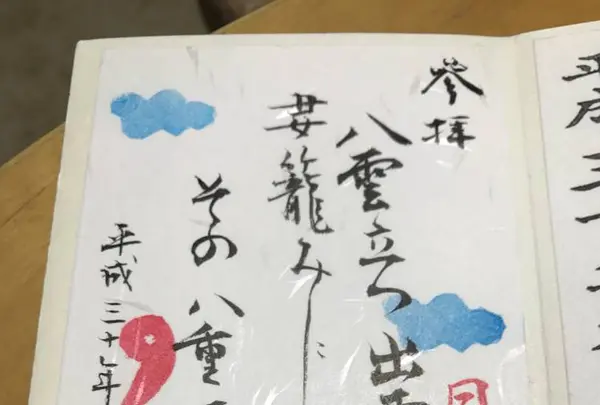 平成三十
參拝
八雲立つ出
妻籠みに
その八重
平成三十一年